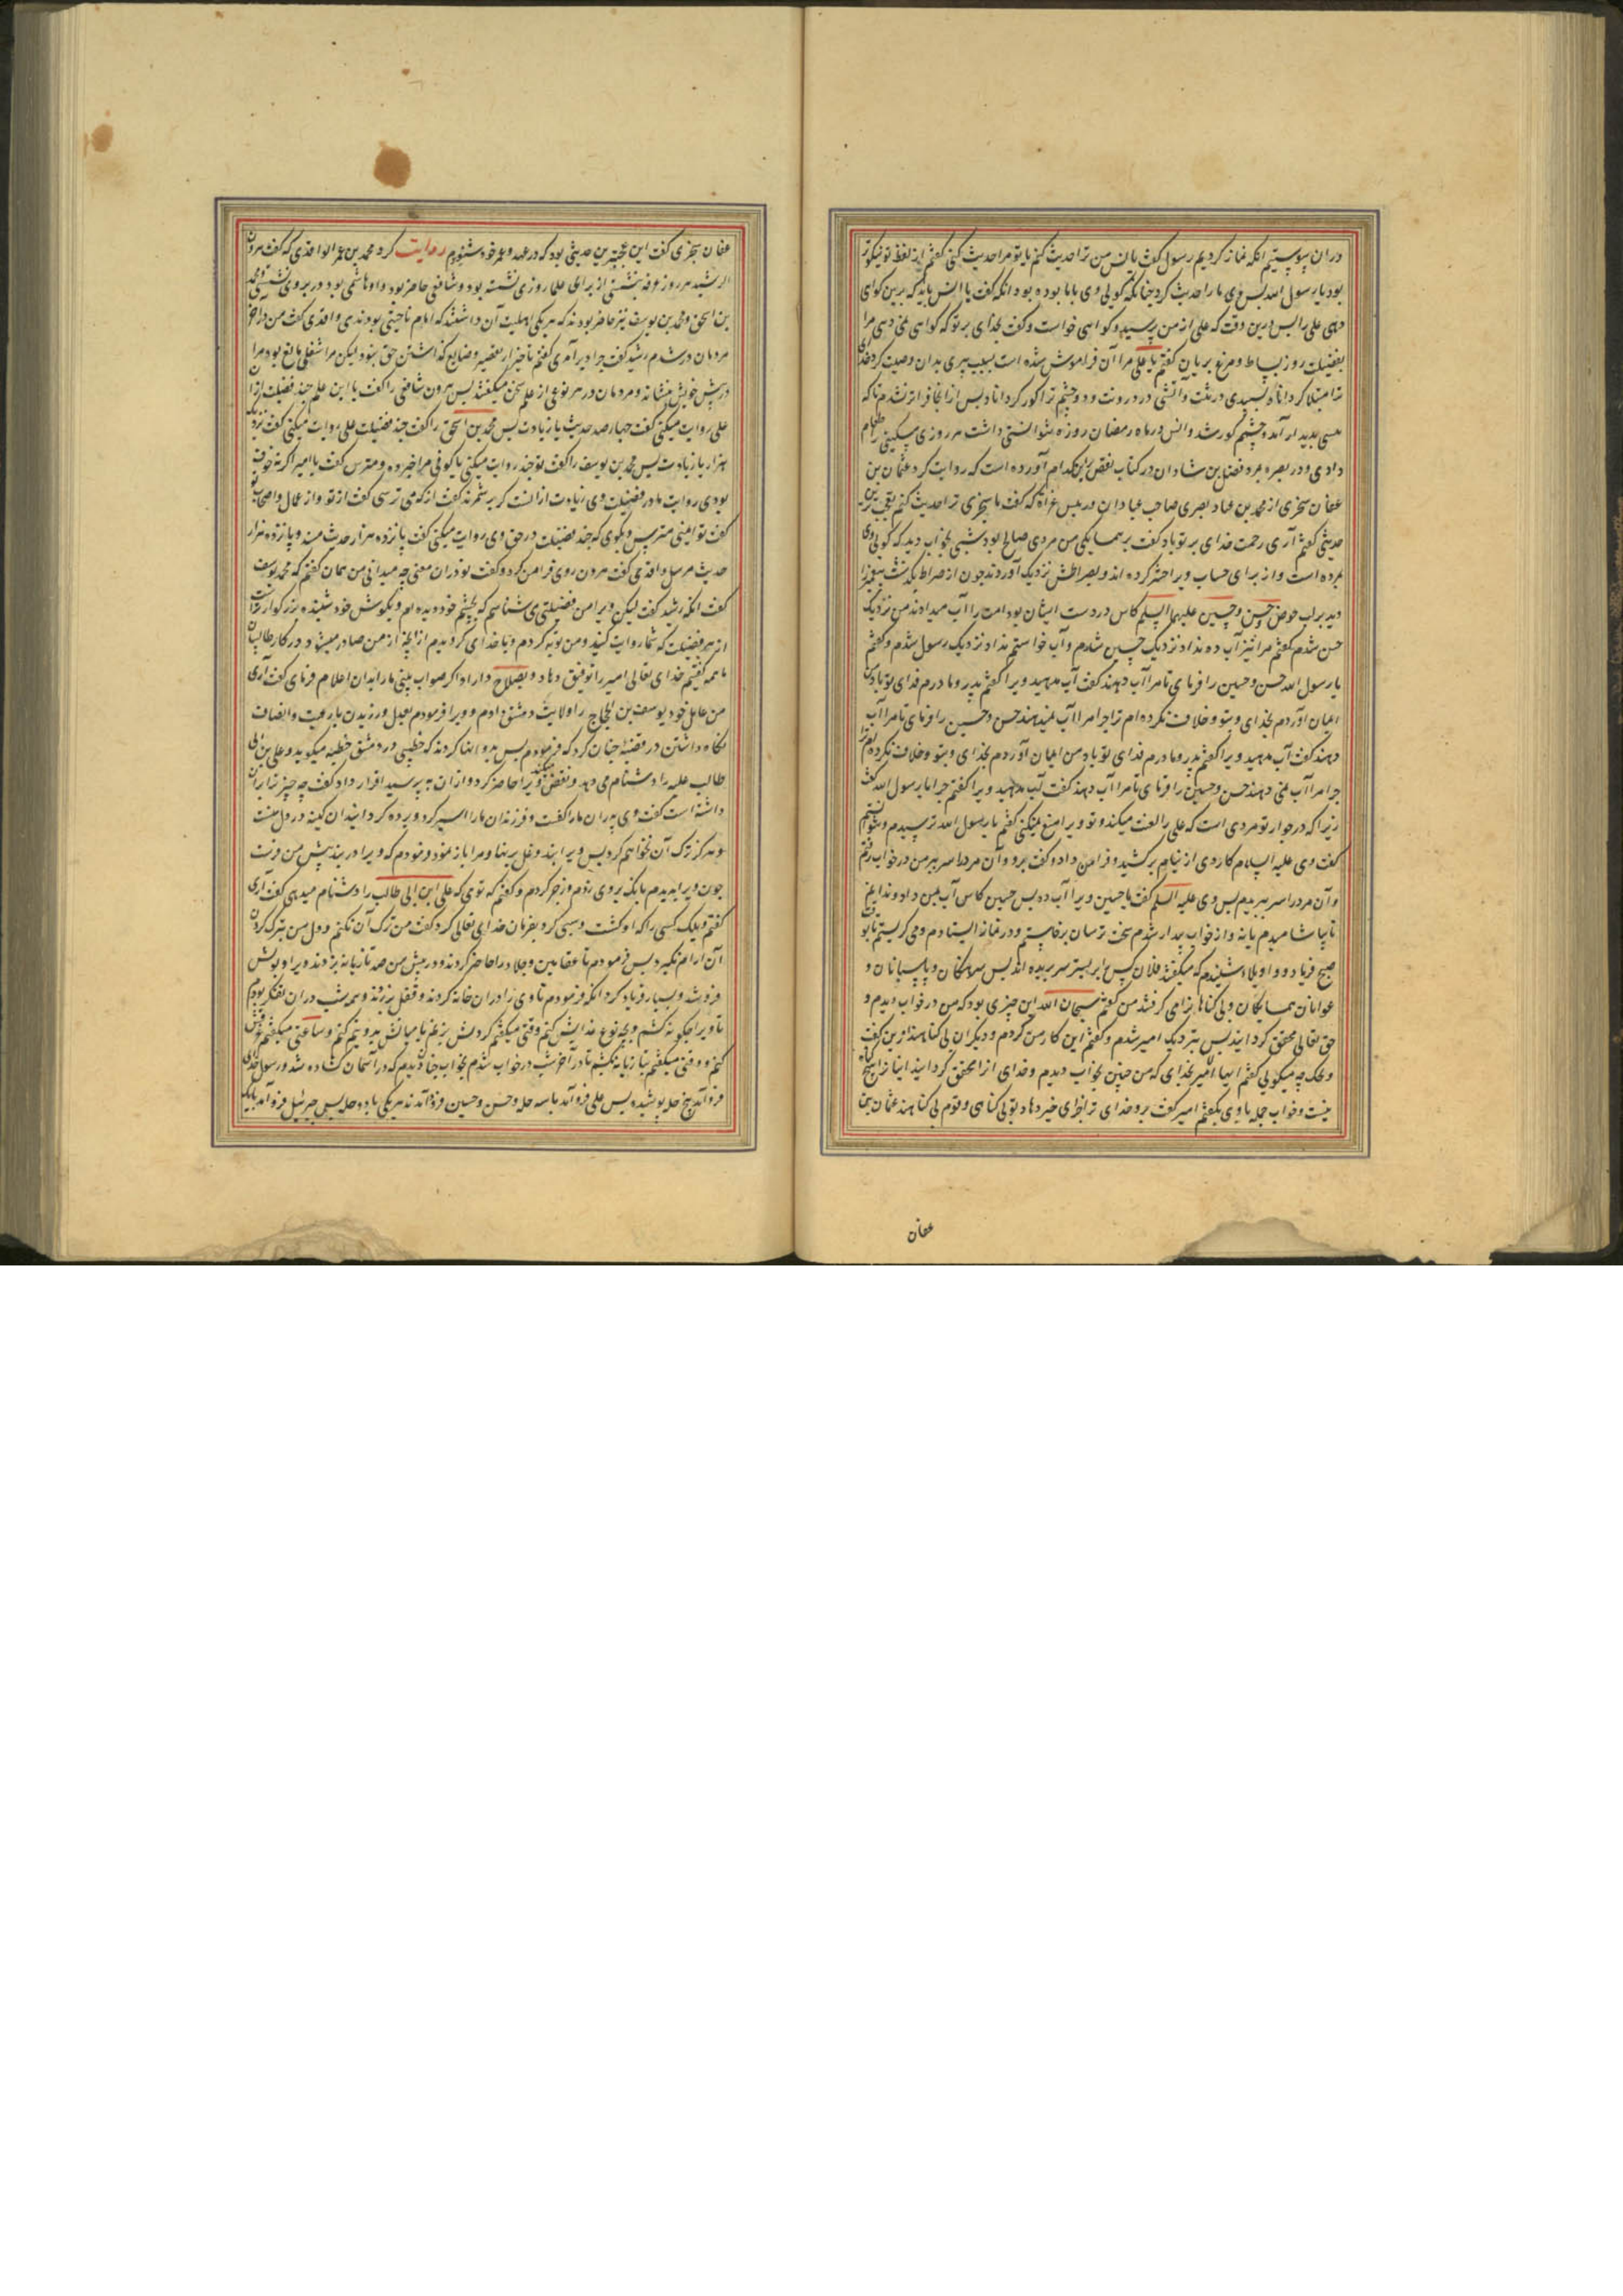 در ان پیوستیم انکه نماز کردیم رسول کفت یا انس من ترا حدیث کنم یا تو مرا حدیث کنی کفتم از لفظ تو نیکوتر
بود یا رسول الله پس وی ما را حدیث کرد چنانکه کوئی وی با ما بوده بود انکه کفت یا انس باید که برین کوای
دهی علی را پس درین وقت که علی از من پرسید و کواهی خواست و کفت بخدای بر تو که کواهی نمی دهی مرا
بفضیلت روز بساط و مرغ بریان کفتم یا علی مرا آن فراموش شده است بسبب پیری بدان وصیت کرد خدای
ترا مبتلا کرداناد بسپیدی در پشت و آتشی در درونت و دو چشم ترا کور کرداناد پس از انجا فراتر نشدم تا که
پیسی پدید ار آمد و چشم کور شد و انس در ماه رمضان روزه نتوانستی داشت هر روزی مسکینی را طعام
دادی و در بصره بمرد فضل بن شاذان در کتاب نقض ابن کدام آورده است که روایت کرد عثمان بن
عفان سجزی از محمد بن عباد بصری صاحب عبادان در مجلس غزاة که کفت یا سجزی ترا حدیث کنم بعجب ترین
حدیثی کفتم آری رحمت خدای بر تو باد کفت بر همسایکی من مردی صالح بود شبی بخواب دید که کوئی وی
بمرده است و از برای حساب ویرا حشر کرده اند و بصراطش نزدیک آوردند چون از صراط بکذشت پیغمبر را
دید بر لب حوض حسن و حسین علیهما السلم کاس در دست ایشان بود امت را آب میدادند من نزدیک
حسن شدم کفتم مرا نیز آب ده نداد نزدیک حسین شدم و آب خواستم نداد نزدیک رسول شدم و کفتم
یا رسول الله حسن و حسین را فرمای تا مرا آب دهند کفت آب مدهید ویرا کفتم پدر و مادرم فدای تو باد من
ایمان آوردم بخدای و بتو و خلافت نکرده ام ترا چرا مرا آب نمیدهند حسن و حسین را فرمای تا مرا آب
دهند کفت آب مدهید ویرا کفتم پدر و مادرم فدای تو باد من ایمان آوردم بخدای و بتو و خلافت نکرده ام ترا
چرا مرا آب نمی دهند حسن و حسین را فرمای تا مرا آب دهند کفت آب مدهید ویرا کفتم چرا یا رسول الله کفت
زیرا که در جوار تو مردی است که علی را لعنت میکند و تو ویرا منع نمیکنی کفتم یا رسول الله ترسیدم و نتوانستم
کفت وی علیه السلام کاردی از نیام برکشید و فرا من داد و کفت برو و آن مرد را سر ببر من در خواب رفتم
و آن مرد را سر ببریدم پس وی علیه السلم کفت یا حسین ویرا آب ده پس حسین کاس آب بمن داد و ندانم
تا بیاشامیدم یا نه و از خواب بیدار شدم سخت ترسان برخاستم و در نماز ایستادم و می کریستم تا بوقت
صبح فریاد و واویلا شنیدم که میکفتند فلان کس را بر بستر سر بریده اند پس سرهنکان و پاسبانان و
عوانان همسایکان و بی کناهانرا می کرفتند من کفتم سبحان الله این چیزی بود که من در خواب دیدم و
حق تعالی محقق کردانید پس بنزدیک امیر شدم و کفتم این کار من کردم و دیکران بی کناهند ازین کفت
ویحک چه میکوئی کفتم ایها الامیر بخدای که من چنین بخواب دیدم و خدای انرا محقق کردانید اینانرا هیچ کناه
نیست و خواب جمله با وی بکفتم امیر کفت برو خدای ترا جزای خیر دهاد تو بی کناهی و قوم بی کناهند عثمان بن
عفان
عفان سجزی کفت این عجبترین حدیثی بود که در عهد و عمر خود شنودم روایت کرد محمد بن عمر الواقدی که کفت هرون
الرشید هر روز عرفه بنشستی از برای علما روزی نشسته بود و شافعی حاضر بود و او هاشمی بود در بر وی نشستی و محمد
بن اسحق و محمد بن یوسف نیز حاضر بودند که هر یکی اهلیت آن داشتند که امام ناحیتی بودندی واقدی کفت من در آخر
مردمان در شدم رشید کفت چرا دیر آمدی کفتم تاخیر از تقصیر و ضایع کذاشتن حق نبود لیکن مرا شغلی مانع بود مرا
در پیش خویش بنشاند و مردمان در هر نوعی از علم سخن میکفتند پس هرون شافعی را کفت یا ابن عم چند فضیلت از ان
علی روایت میکنی کفت چهارصد حدیث یا زیادت پس محمد بن اسحق را کفت چند فضیلت علی روایت میکنی کفت نزدیک
هزار یا زیادت پس محمد بن یوسف را کفت تو چند روایت میکنی یا کوفی مرا خبر ده و مترس کفت یا امیر اکر نه خوف
بودی روایت ما در فضیلت وی زیادت از انست که برشمرند کفت از که می ترسی کفت از تو و از عمال و اصحاب تو
کفت تو ایمنی مترس و بکوی که چند فضیلت در حق وی روایت میکنی کفت پانزده هزار حدیث مسند و پانزده هزار
حدیث مرسل واقدی کفت هرون روی فرا من کرد و کفت تو در ان معنی چه میدانی من همان کفتم که محمد یوسف
کفت انکه رشید کفت لیکن ویرا من فضیلتی می شناسم که بچشم خود دیده ام و بکوش خود شنیده بزرکوارتر است
از هر فضیلت که شما روایت کنید و من توبه کردم و با خدای کردیدم از انچه از من صادر میشد در کار طالبیان
ما همه کفتیم خدای تعالی امیر را توفیق دهاد و بصلاح داراد اکر صواب بینی ما را بدان اعلام فرمای کفت آری
من عامل خود یوسف بن الحجاج را ولایت دمشق دادم و ویرا فرمودم بعدل ورزیدن با رعیت و انصاف
نکاه داشتن در قضیه چنان کرد که فرمودم پس بدو انها کردند که خطیبی در دمشق خطبه میکوید و علی بن ابی
طالب علیه را دشنام می دهد و نقض میکند ویرا حاضر کرد و از ان بپرسید اقرار داد کفت چه چیز ترا بران
داشته است کفت وی پدران ما را کشت و فرزندان ما را اسیر کرد و برده کردانید ان کینه در دل منست
و هرکز ترک آن نخواهم کرد پس ویرا بند و غل برنهاد و مرا باز نمود فرمودم که ویرا در بند پیش من فرست
چون ویرا بدیدم بانک بروی زدم و زجر کردم و کفتم که توی که علی ابن ابی طالب را دشنام میدهی کفت آری
کفتم ویلک کسی را که او کشت و سبی کرد بفرمان خدای تعالی کرد کفت من ترک آن نکنم و دل من بترک کردن
آن آرام نکیرد پس فرمودم تا عقابین و جلاد را حاضر کردند و در پیش من صد تازیانه بزدند ویرا و بولش
فرو شد و بسیار فریاد کرد انکه فرمودم تا وی را در ان خانه کردند و قفل برزدند و همه شب در ان تفکر بودم
تا ویرا چکونه کشم و بچه نوع عذابش کنم وقتی میکفتم کردنش بزنم یا میانش بدو نیم کنم و ساعتی میکفتم غرقش
کنم و وقتی میکفتم بتازیانه بکشم تا در آخر شب در خواب شدم بخواب چنان دیدم که در آسمان کشاده شد و رسول خدای
فرو آمد پنج حله پوشیده پس علی فرو آمد با سه حله و حسن و حسین فرو آمدند هر یکی با دو حله پس جبرئیل فرو آمد با یک